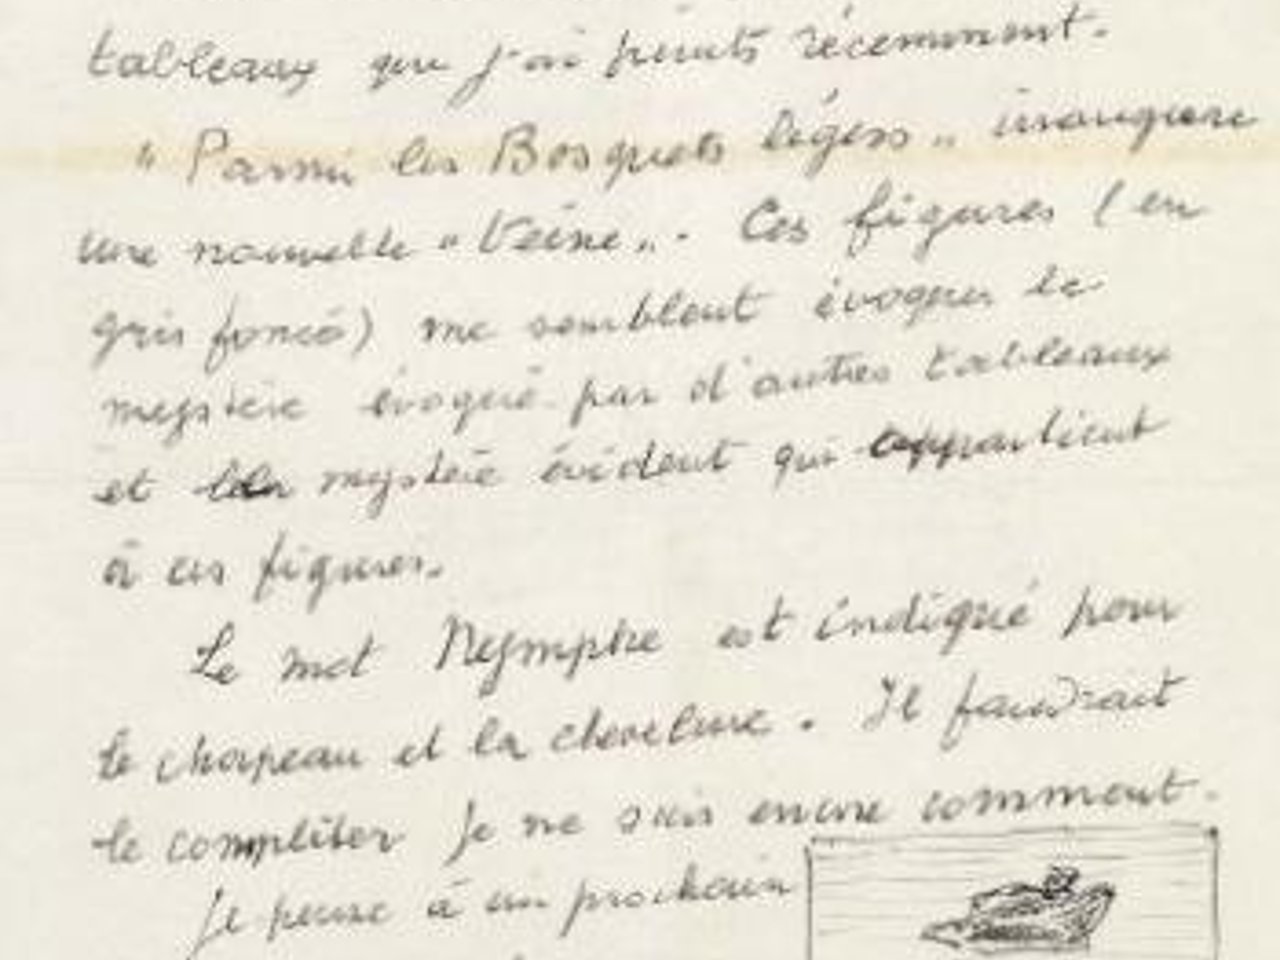 tableaux que j'ai peints récemment.
"Parmi les Bosquets légers" inaugure
une nouvelle "Veine". Ces figures (en
gris foncé) me semblent évoquer le
mystère évoqué par d'autres tableaux
et mystère évident qui appartient
à ces figures.
Le mot Nymphe est indiqué pour
le chapeau et la chevelure. Il faudrait
le compléter je ne sais encore comment.
Je pense à un prochain